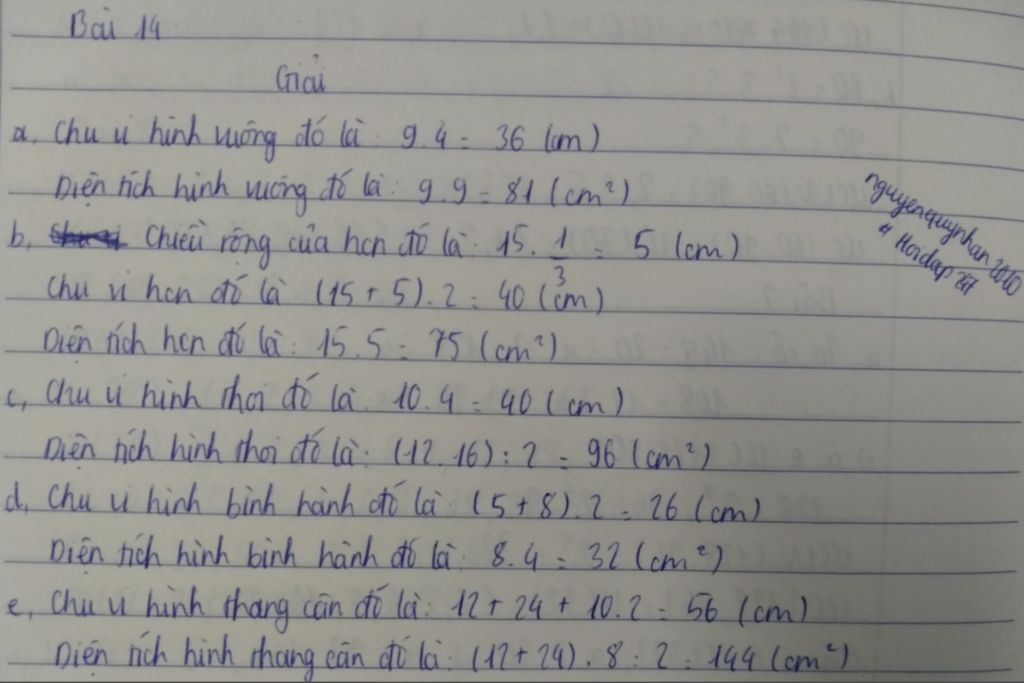 Bài 14
Giải
a, Chu vi hình vuông đó là: 9.4 = 36 (cm)
Diện tích hình vuông đó là: 9.9 = 81 (cm²)
b, Chiều rộng của hcn đó là: 15. 1/3 = 5 (cm)
Chu vi hcn đó là: (15 + 5).2 = 40 (cm)
Diện tích hcn đó là: 15.5 = 75 (cm²)
c, Chu vi hình thoi đó là: 10.4 = 40 (cm)
Diện tích hình thoi đó là: (12.16) : 2 = 96 (cm²)
d, Chu vi hình bình hành đó là: (5 + 8).2 = 26 (cm)
Diện tích hình bình hành đó là: 8.4 = 32 (cm²)
e, Chu vi hình thang cân đó là: 12 + 24 + 10.2 = 56 (cm)
Diện tích hình thang cân đó là: (12 + 24).8 : 2 = 144 (cm²)
nguyenquynhan2010
# Hoidap247